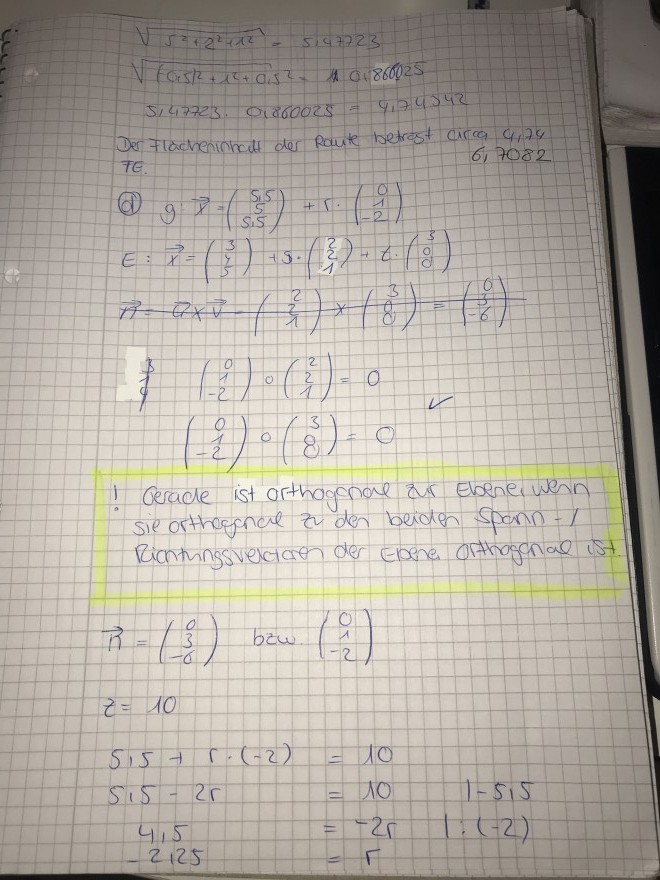 √5²+2²+1² = 5,47723
√(0,5)²+1²+0,5² = 0,860025
5,47723 · 0,860025 = 4,74342
Der Flächeninhalt der Raute beträgt circa 4,74
FE. 6,7082
d) g: x⃗ = (5,5 5 5,5) + r · (0 1 -2)
E: x⃗ = (3 5) + s · (2 2 1) + t · (3 0 0)
n⃗ = u⃗ x v⃗ = (2 2 1) x (3 0 0) = (0 3 -6)
(0 1 -2) ∘ (2 2 1) = 0
✓
(0 1 -2) ∘ (3 0 0) = 0
! Gerade ist orthogonal zur Ebene, wenn
sie orthogonal zu den beiden Spann-/
Richtungsvektoren der Ebene orthogonal ist.
n⃗ = (0 3 -6) bzw. (0 1 -2)
z = 10
5,5 + r · (-2) = 10
5,5 - 2r = 10 |-5,5
4,5 = -2r |:(-2)
-2,25 = r